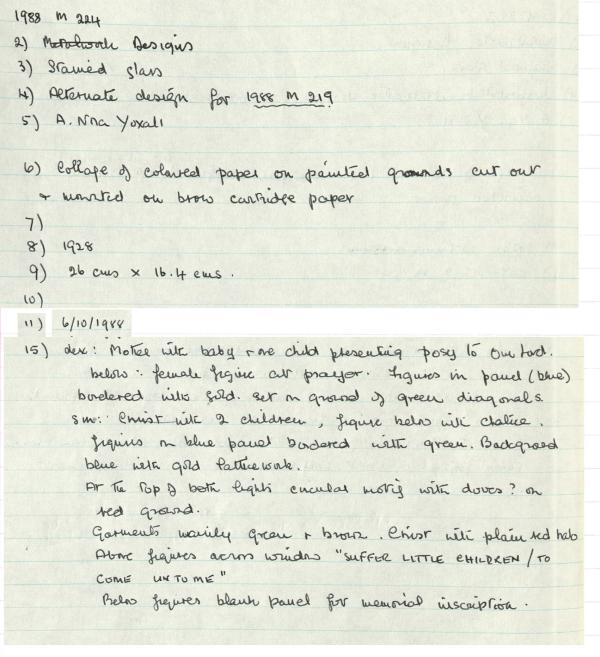 1988 M 224
2) Metalwork Designs
3) Stained glass
4) Alternate design for 1988 M 219
5) A. Nna Yoxall
6) Collage of coloured paper on painted grounds cut out
+ mounted on brow cartridge paper
7)
8) 1928
9) 26 cms × 16.4 cms.
10)
11) 6/10/1988
15) dex: Mother with baby + one child presenting posy to Our Lord.
below :- female figure at prayer. Figures in panel (blue)
bordered with gold. set on ground of green diagonals.
sin: Christ with 2 children, figure below with chalice.
figures on blue panel bordered with green. Background
blue with gold latticework.
At the top of both lights circular motif with doves? on
red ground.
Garments mainly green + brown. Christ with plain red halo
Above figures across window "SUFFER LITTLE CHILDREN / TO
COME UNTO ME"
Below figures blank panel for memorial inscription.